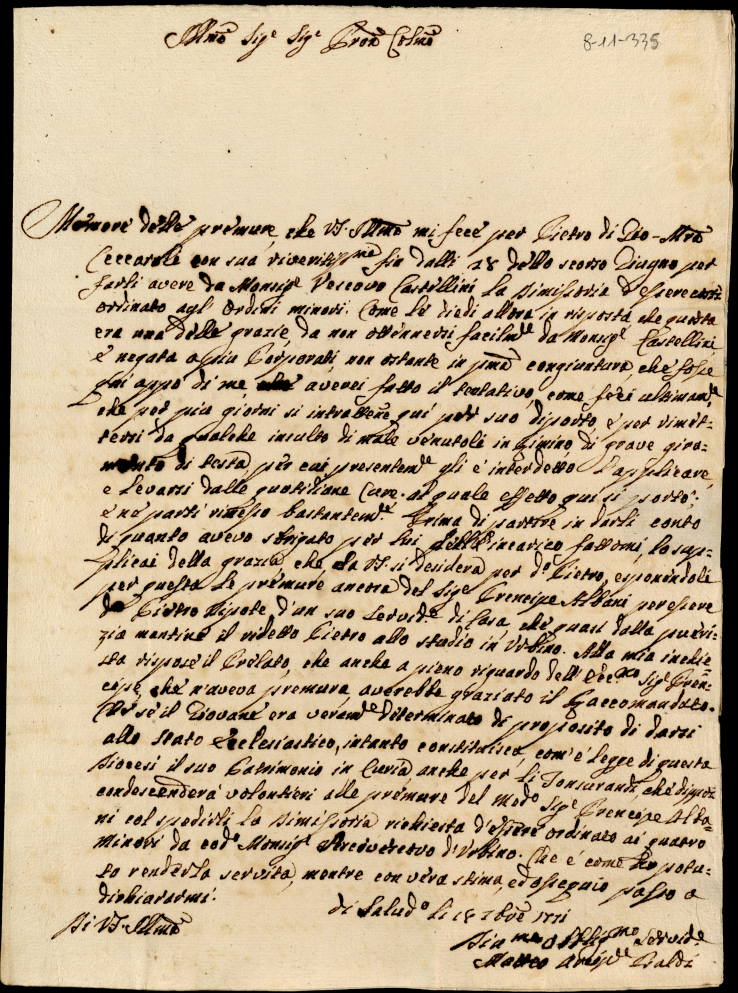 Illmo Sigr Sigr Pron Colmo
8-11-335
Memore delle premure, che VS. Illma mi fece per Pietro di Gio-Mra
Ceccaroli con sua riveritma fin dalli 28 dello scorso Giugno per
farli avere da Monsigr Vescovo Castellini la Dimissoria d'essere
ordinato agl' Ordini minori. Come le diedi allora in risposta che questa
era una delle grazie, da non ottennersi facilmte da Monsigr Castellini
e negata a più Comprovati, non ostante in pma congiuntura che fosse
qui appò di me averei fatto il tentativo, come feci ultimamte
che per più giorni si intrattene qui per suo diporto, e per rimet-
tersi da qualche insulto di male venutoli in Rimino di grave gira-
mento di testa, per cui presentemte gli è interdetto l'applicare,
e levarsi dalle quotidiane Cure. al quale effetto qui si portò,
e ne partì rimesso bastantemte. Prima di partire in darli conto
di quanto avevo sbrigato per lui incarico fattomi, lo sup-
plicai della grazia, che da VS. si desidera per do Pietro, esponendoli
per questa le premure ancora del Sigr Prencipe Albani per essere
do Pietro Nipote d'un suo Servidre di Casa che quasi dalla pueri-
zia mantine il ridetto Pietro allo studio in Urbino. Alla mia inchie-
sta rispose il Prelato, che anche a pieno riguardo dell' Eccmo Sigr Pren-
cipe, che n'aveva premura, averebbe graziato il Raccomandato.
Che se il Giovane era veramte determinato di proposito di darsi
allo stato Ecclesiastico, intanto constituisca, com'è legge di questa
Diocesi il suo Patrimonio in Curia anche per li Tonsurandi, che
condescenderà volontieri alle premure del medo Sigr Prencipe Alba-
ni col spedirli la Dimissoria richiesta d'essere ordinato ai quatro
Minori da codo Monsigr Arcivescovo d'Urbino. Che è come ho potu-
to renderla servita, mentre con vera stima, ed ossequio passo a
dichiararmi.
di Saludo li 18 1771
Di VS. Illma
Divmo Obbligmo Servidre
Matteo Baldi